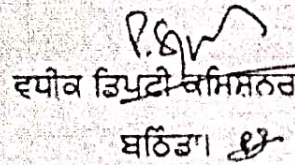 ਵਧੀਕ ਡਿਪਟੀ ਕਮਿਸ਼ਨਰ
ਬਠਿੰਡਾ।